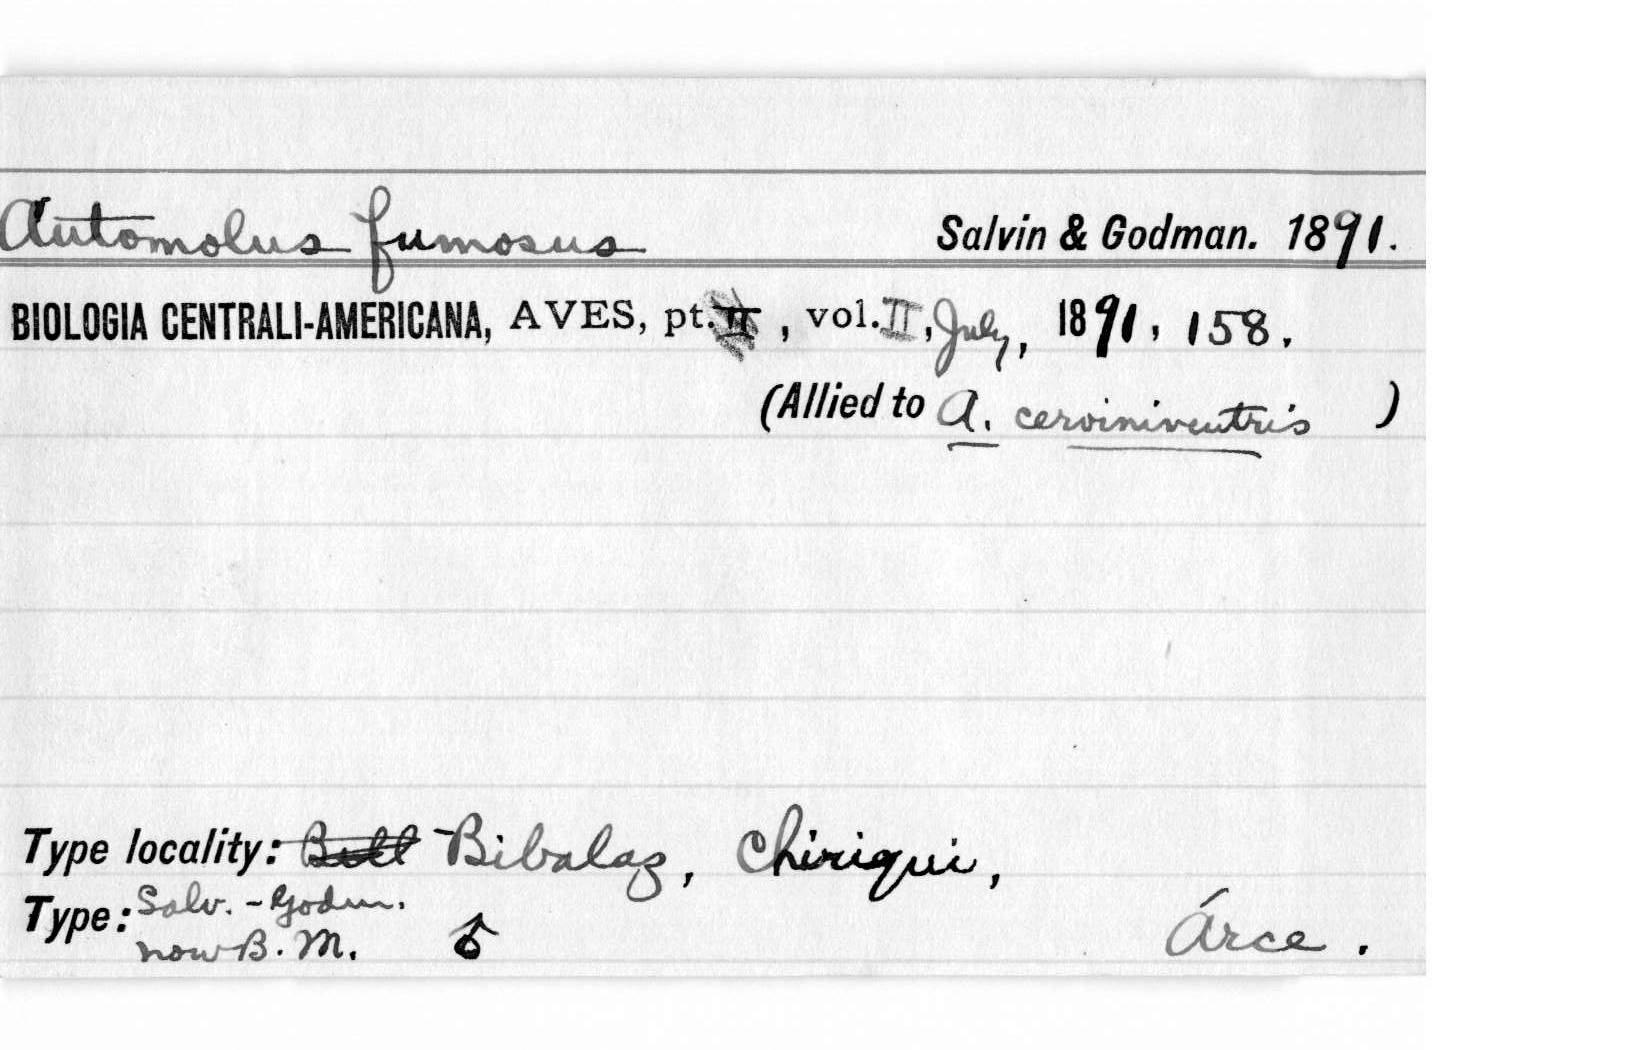 Automolus fumosus Salvin & Godman. 1891.
BIOLOGIA CENTRALI-AMERICANA, AVES, pt. , vol. II, July, 1891, 158.
(Allied to A. cerviniventris )
Type locality: Bibalaz, Chiriqui,
Type: Salv. - Godm.
now B. M. ♂ Árce.